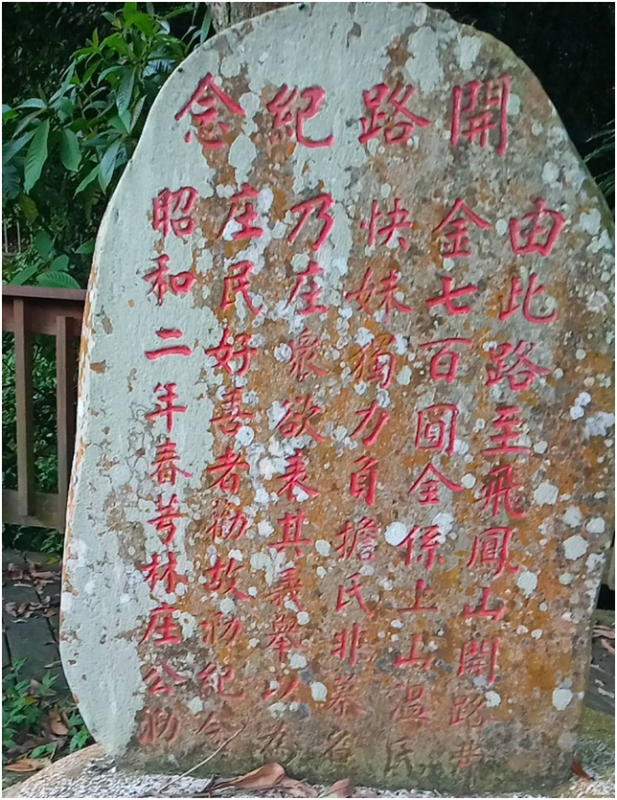 開路紀念
由此路至飛鳳山開路費
金七百圓全係上山溫氏
快妹獨力負擔氏非慕名
乃庄衆欲表其義舉以為
庄民好善者勸故泐紀念
昭和二年春芎林庄公泐